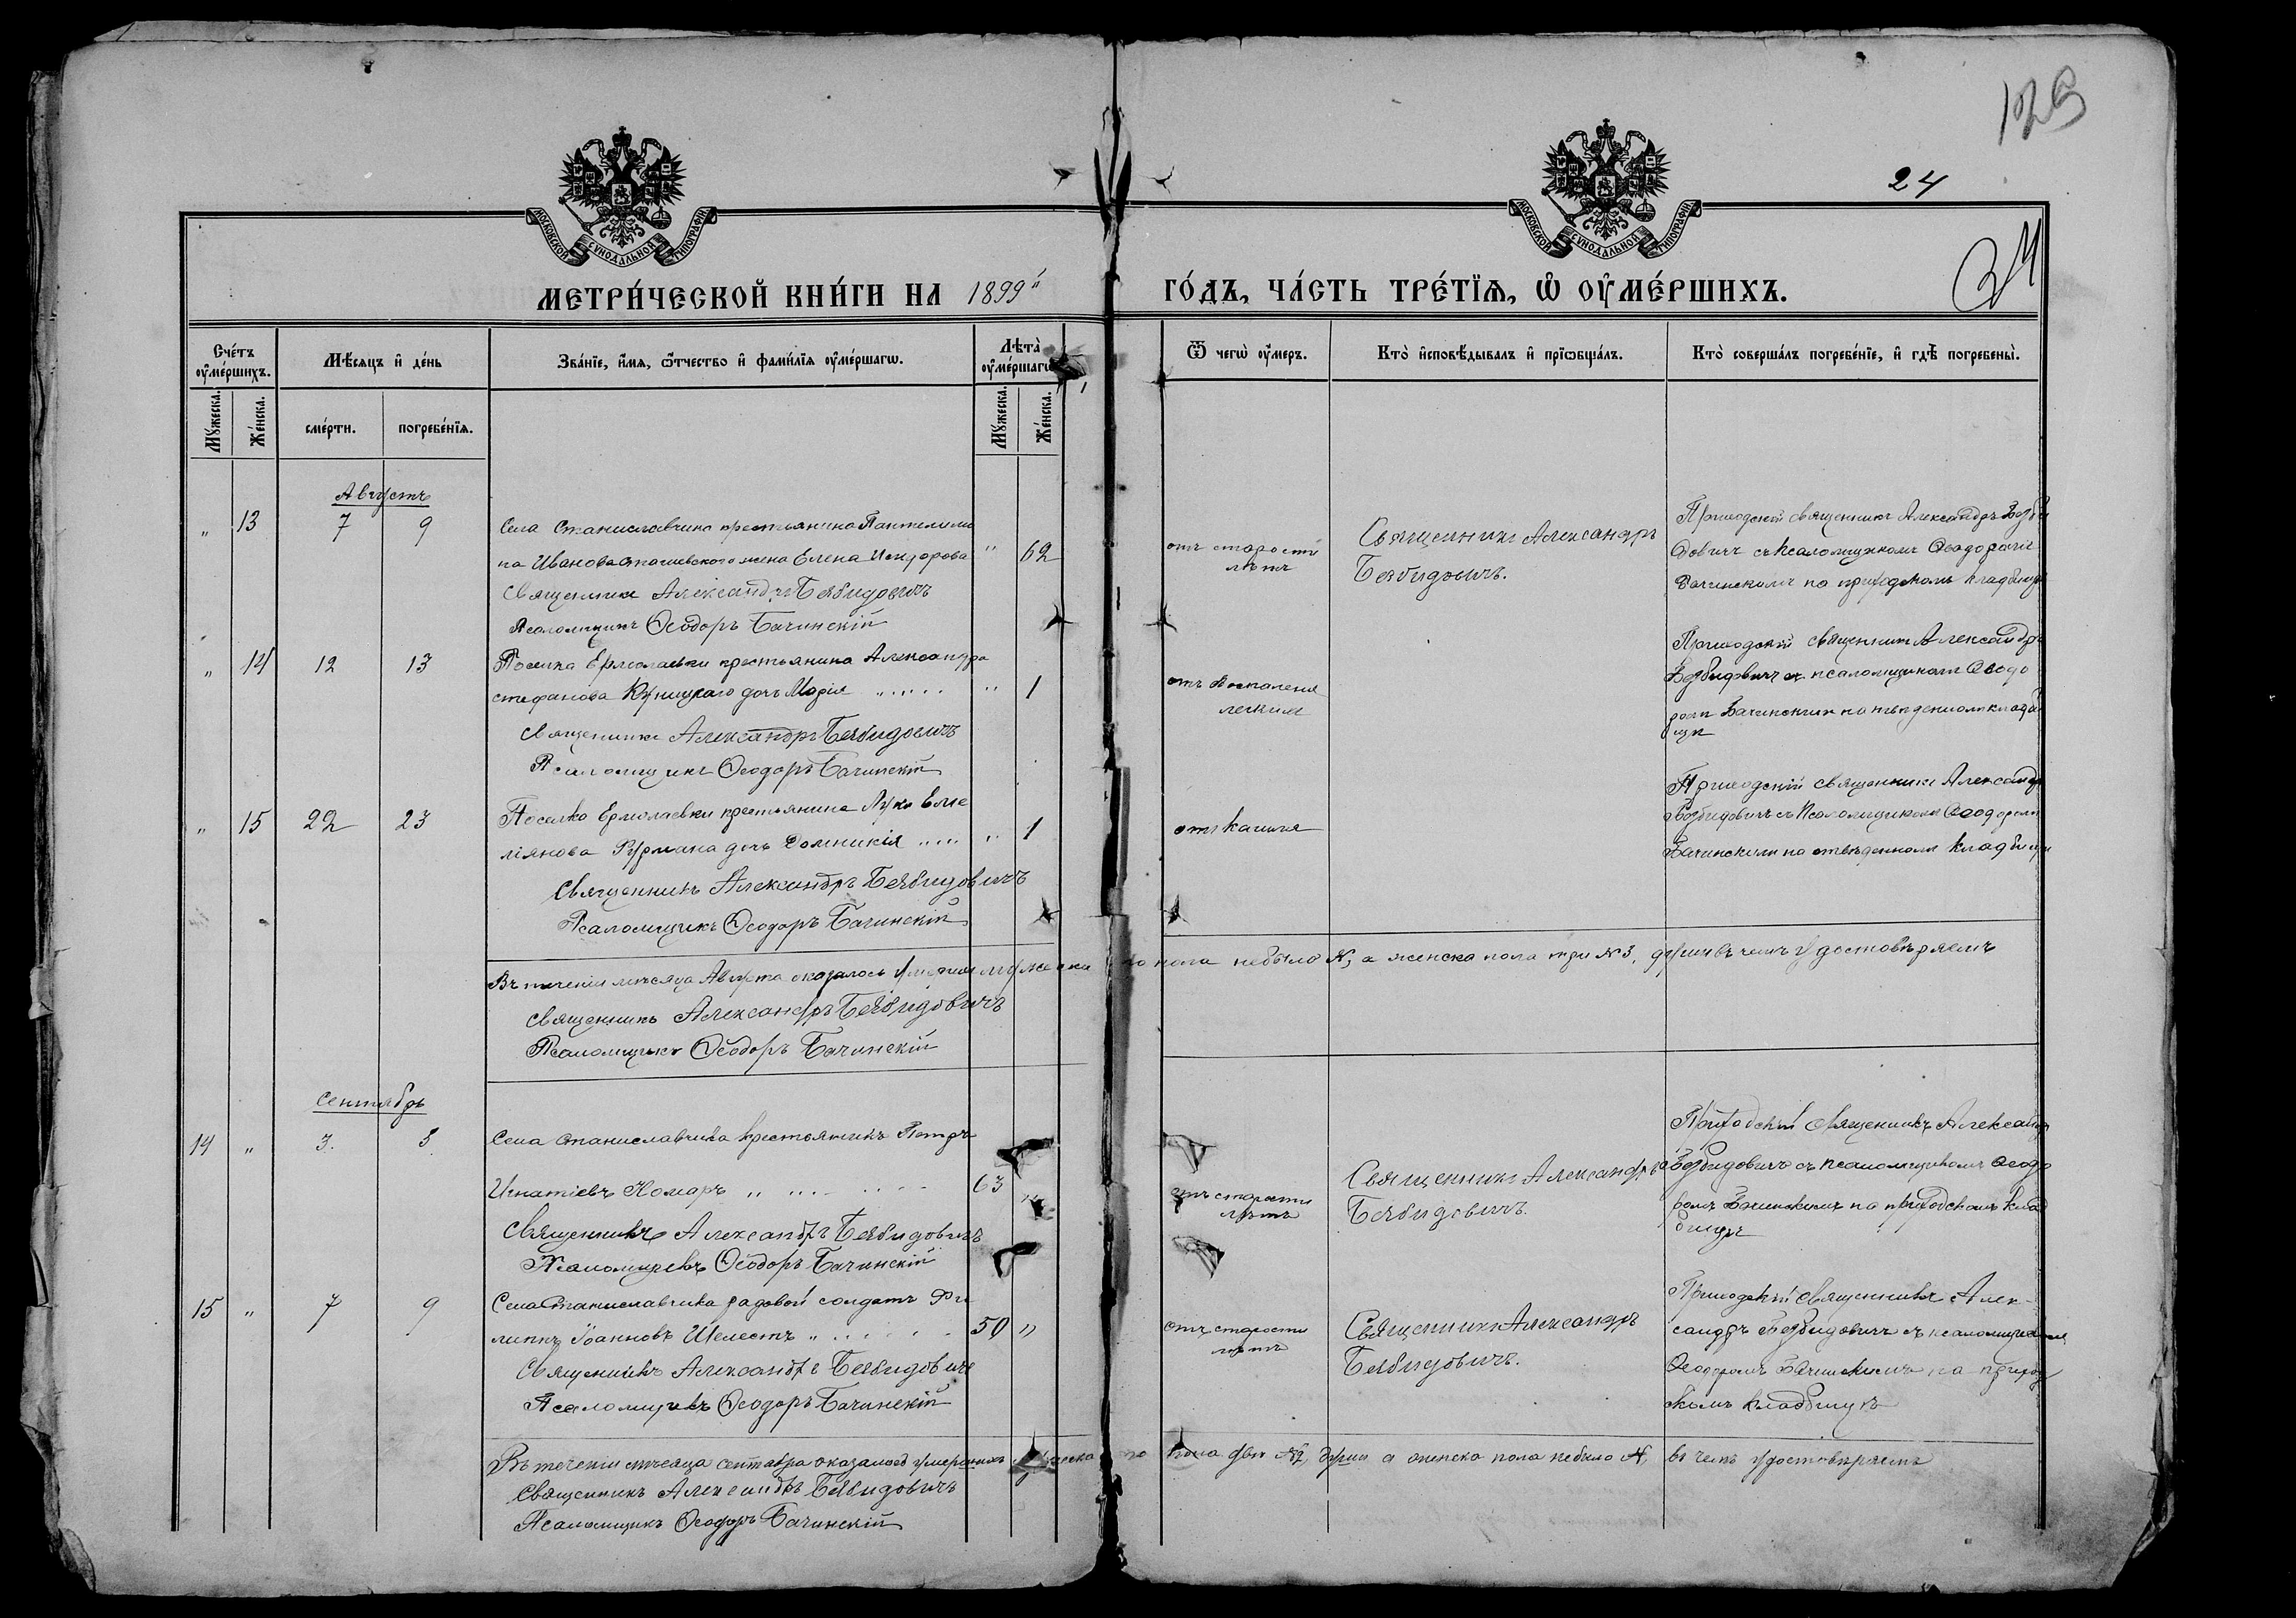 129
24
24
МОСКОВСКОЙ СѴНОДАЛЬНОЙ ТИПОГРАФІИ
МОСКОВСКОЙ СѴНОДАЛЬНОЙ ТИПОГРАФІИ
МЕТРИ́ЧЕСКОЙ КНИ́ГИ НА 1899й
ГО́ДЪ, ЧА́СТЬ ТРЕ́ТЇѦ, Ѽ ОУ҆МЕ́РШИХЪ.
Сче́тъ оу҆ме́ршихъ.
Мѣ́сяцъ и҆ де́нь
Зва́нїе, и҆́мѧ, ѻ҆́тчество и҆ фами́лїѧ оу҆ме́ршагѡ.
Лѣ́та оу҆ме́ршагѡ
Ѿ чегѡ̀ оу҆́меръ.
Кто̀ и҆сповѣ́дывалъ и҆ прїѡбща́лъ.
Кто̀ соверша́лъ погребе́нїе, и҆ гдѣ̀ погребены̀.
Мꙋ́жеска.
Же́нска.
сме́рти.
погребе́нїѧ.
Мꙋ́жеска.
Же́нска.
Августъ
" 13 7 9
Села Станиславчика крестьянина Пантелимо
на Иванова жена Елена Исидорова " 62
Священникъ Александръ Безбидовичъ
Псаломщикъ Ѳеодоръ Бачинскій
отъ старости
лѣтъ
Священникъ Александръ
Безбидовичъ.
Приходскій священникъ Александръ Безби
довичъ съ псаломщикомъ Ѳеодоромъ
Бачинскимъ на приходскомъ кладбищѣ
" 14 12 13
Поселка Ермолаевки крестьянина Александра
Стефанова Куницкаго дочь Марія " 1
Священникъ Александръ Безбидовичъ
Псаломщикъ Ѳеодоръ Бачинскій
отъ воспаленія
легкихъ
Приходскій священникъ Александръ
Безбидовичъ съ псаломщикомъ Ѳеодо
ромъ Бачинскимъ на отведенномъ кладби
щѣ
" 15 22 23
Поселка Ермолаевки крестьянина Луки Еме
ліянова Фурмана дочь Домникія " 1
Священникъ Александръ Безбидовичъ
Псаломщикъ Ѳеодоръ Бачинскій
отъ кашля
Приходскій священникъ Александръ
Безбидовичъ съ псаломщикомъ Ѳеодоромъ
Бачинскимъ на отведенномъ кладбищѣ
Въ теченіи мѣсяца Августа оказалось умершихъ мужеска го пола небыло №, а женска пола три №3, души въ чемъ удостовѣряемъ
Священникъ Александръ Безбидовичъ
Псаломщикъ Ѳеодоръ Бачинскій
Сентябрь
14 " 3. 5.
Села Станиславчика крестьянинъ Петръ
Игнатіевъ Комаръ 63 "
Священникъ Александръ Безбидовичъ
Псаломщикъ Ѳеодоръ Бачинскій
отъ старости
лѣтъ
Священникъ Александръ
Безбидовичъ.
Приходскій священникъ Александръ
Безбидовичъ съ псаломщикомъ Ѳеодо
ромъ Бачинскимъ на приходскомъ клад
бищѣ
15 " 7 9
Села Станиславчика рядовой солдатъ Фи
липпъ Іоанновъ Шелестъ 50 "
Священникъ Александръ Безбидовичъ
Псаломщикъ Ѳеодоръ Бачинскій
отъ старости
лѣтъ
Священникъ Александръ
Безбидовичъ.
Приходскій священникъ Алек-
сандръ Безбидовичъ съ псаломщикомъ
Ѳеодоромъ Бачинскимъ на приход
скомъ кладбищѣ
Въ теченіи мѣсяца сентября оказалось умершихъ мужеска го пола двѣ №2, души а женска пола небыло №, въ чемъ удостовѣряемъ
Священникъ Александръ Безбидовичъ
Псаломщикъ Ѳеодоръ Бачинскій